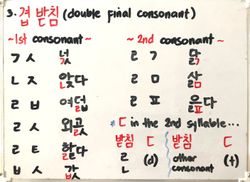 3. 겹 받침 (double final consonant)
~1st consonant~ ~2nd consonant~
ㄱ ㅅ 넋 ㄹ ㄱ 닭
ㄴ ㅈ 앉다 ㄹ ㅁ 삶
ㄹ ㅂ 여덟 ㄹ ㅍ 읊다
ㄹ ㅅ 외곬 *ㄷ in the 2nd syllable...
ㄹ ㅌ 핥다 받침 ㄷ 받침 ㄷ
ㅂ ㅅ 값 ㄹ (d) other consonant (t)